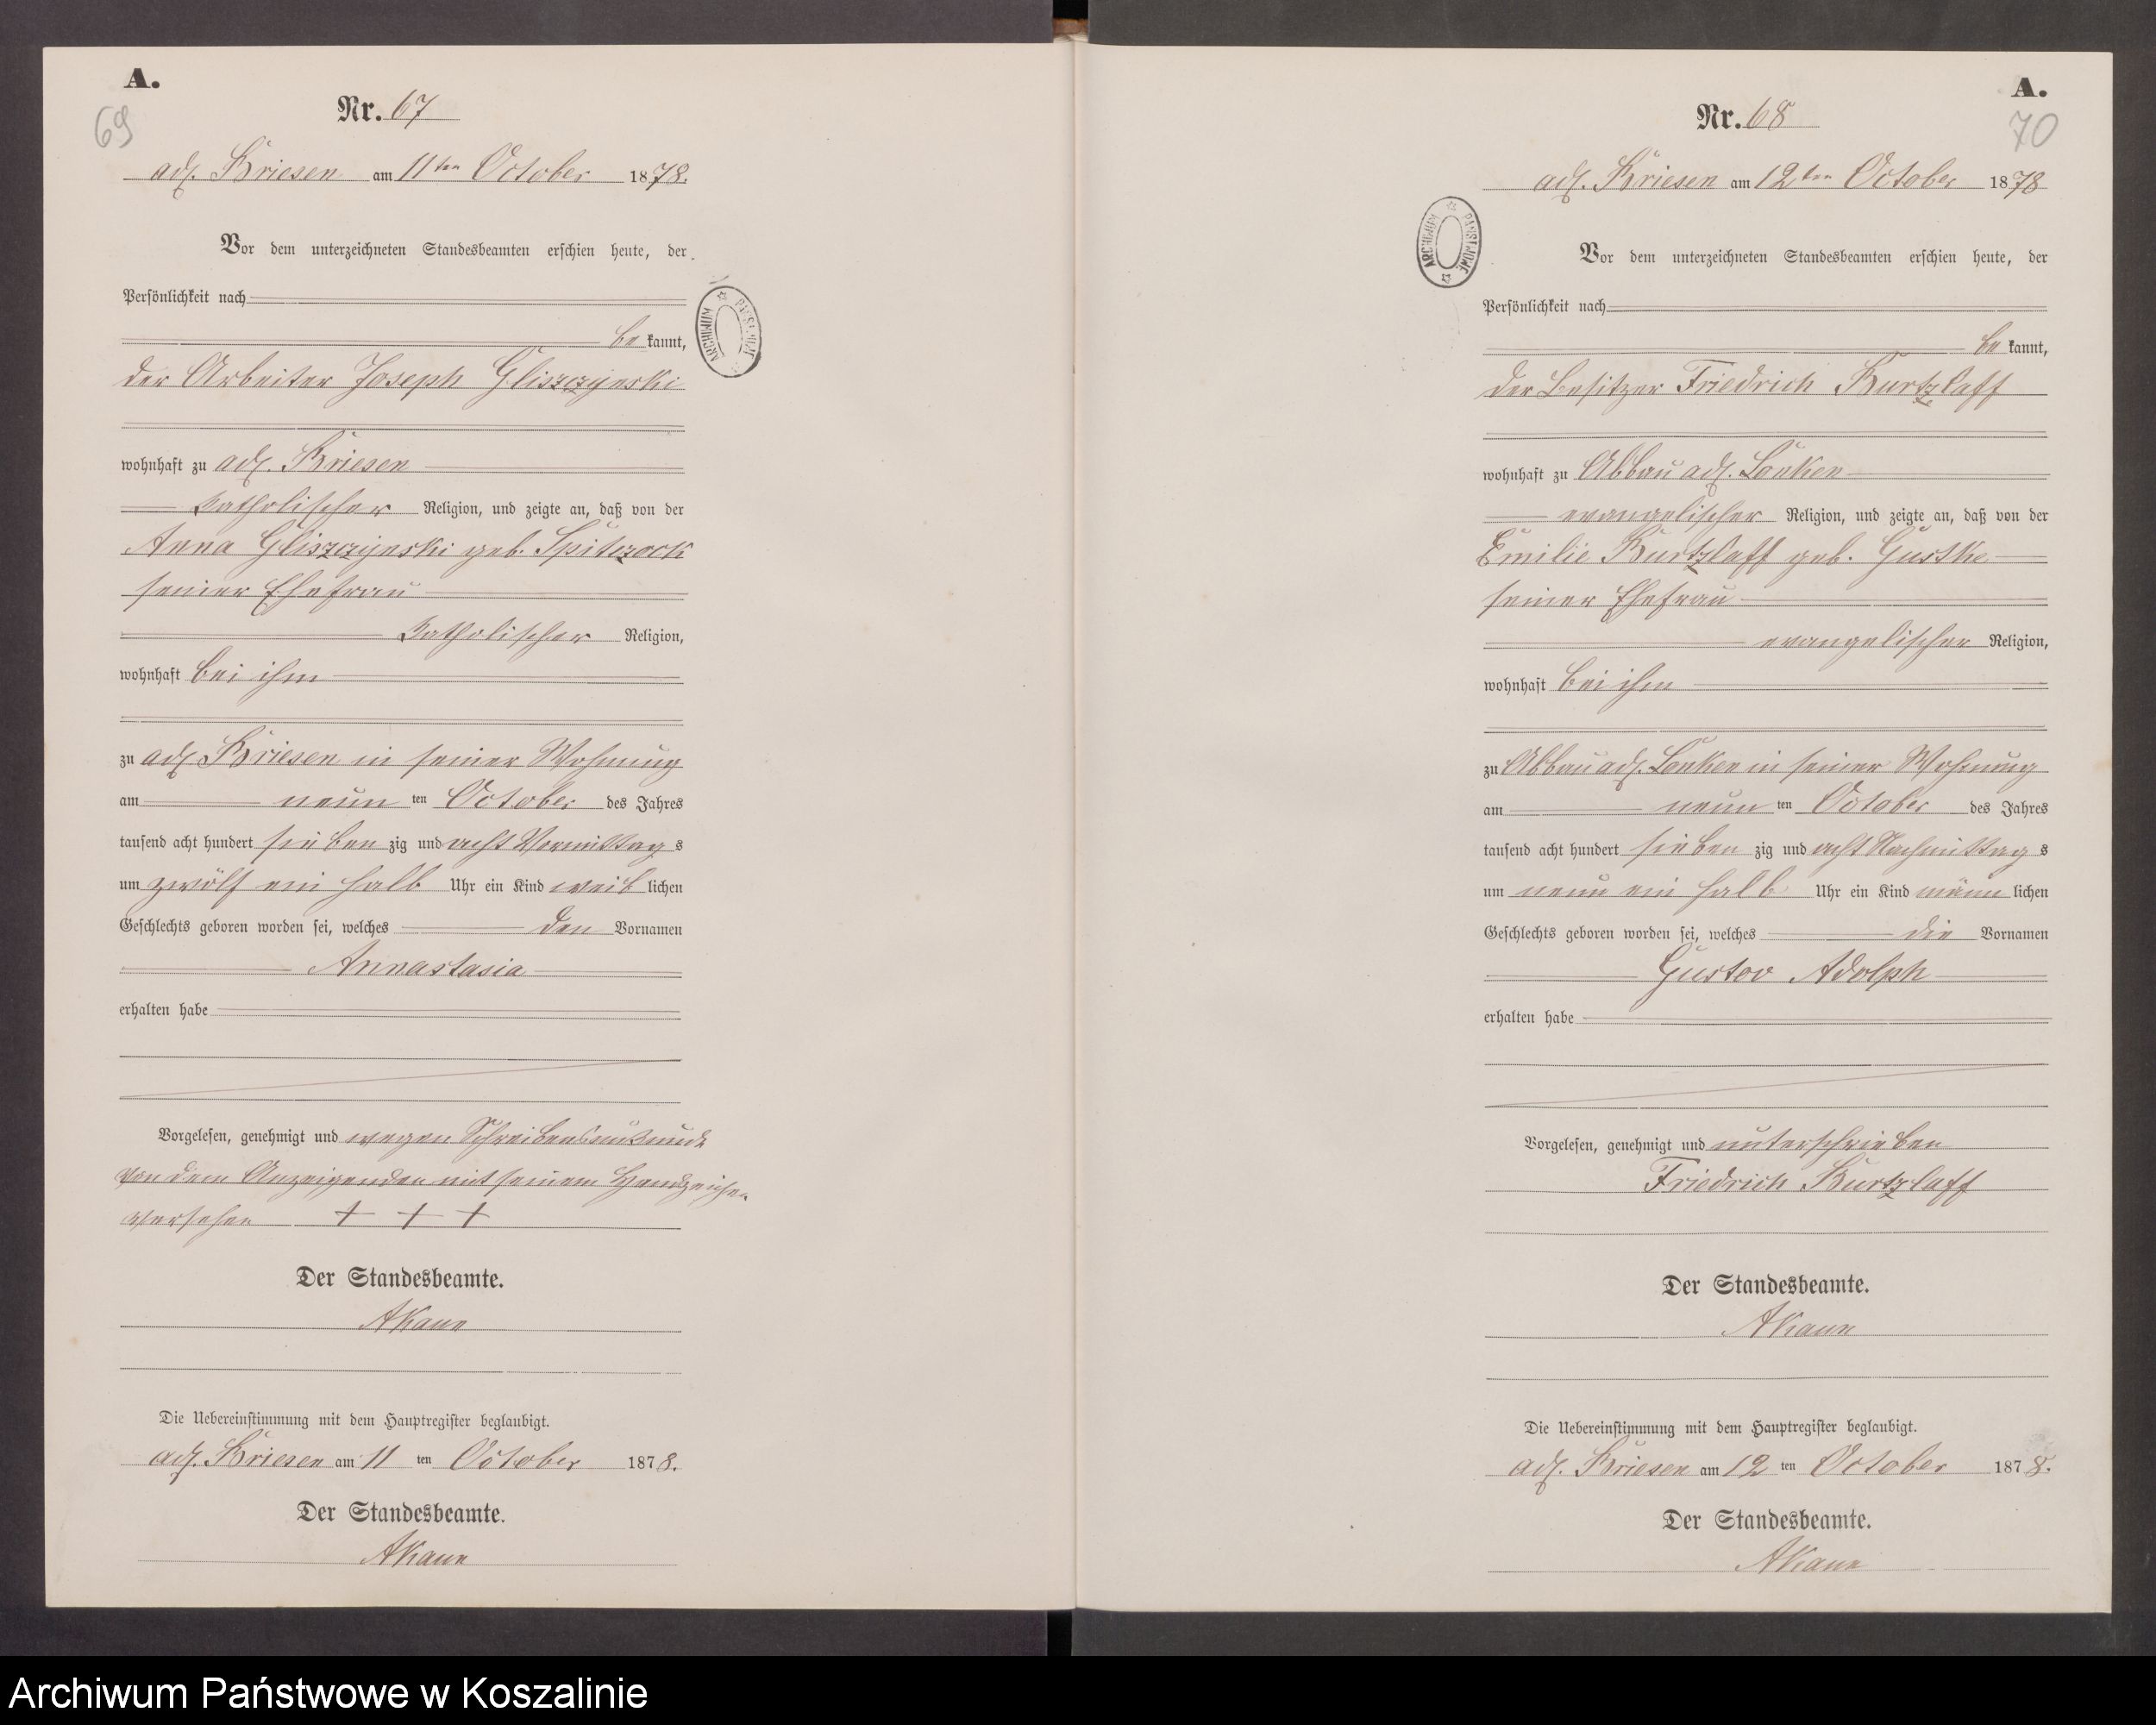 A.
69
Nr. 67
adl. Briesen am 11ten October 1878.
Vor dem unterzeichneten Standesbeamten erschien heute, der
Persönlichkeit nach
be kannt,
der Arbeiter Joseph Gliszczynski
wohnhaft zu adl. Briesen
katholischer Religion, und zeigte an, daß von der
Anna Gliszczynski geb. Spitczock
seiner Ehefrau
katholischer Religion,
wohnhaft bei ihm
zu adl. Briesen in seiner Wohnung
am neun ten October des Jahres
tausend acht hundert sieben zig und acht Vormittag s
um zwölf ein halb Uhr ein Kind weib lichen
Geschlechts geboren worden sei, welches den Vornamen
Annastasia
erhalten habe
Vorgelesen, genehmigt und wegen Schreibensunkunde
von dem Anzeigenden mit seinem Handzeichen
versehen + + +
Der Standesbeamte.
Die Uebereinstimmung mit dem Hauptregister beglaubigt.
adl. Briesen am 11 ten October 1878.
Der Standesbeamte.
A.
70
Nr. 68
adl. Briesen am 12ten October 1878
ARCHIWUM PAŃSTWOWE
Vor dem unterzeichneten Standesbeamten erschien heute, der
Persönlichkeit nach
be kannt,
der Besitzer Friedrich Kurtzlaff
wohnhaft zu Abbau adl. Lonken
evangelischer Religion, und zeigte an, daß von der
Emilie Kurtzlaff geb. Gustke
seiner Ehefrau
evangelischer Religion,
wohnhaft bei ihm
zu Abbau adl. Lonken in seiner Wohnung
am neun ten October des Jahres
tausend acht hundert sieben zig und acht Nachmittag s
um neun ein halb Uhr ein Kind männ lichen
Geschlechts geboren worden sei, welches die Vornamen
Gustav Adolph
erhalten habe
Vorgelesen, genehmigt und unterschrieben
Friedrich Kurtzlaff
Der Standesbeamte.
Die Uebereinstimmung mit dem Hauptregister beglaubigt.
adl. Briesen am 12 ten October 1878.
Der Standesbeamte.
Archiwum Państwowe w Koszalinie